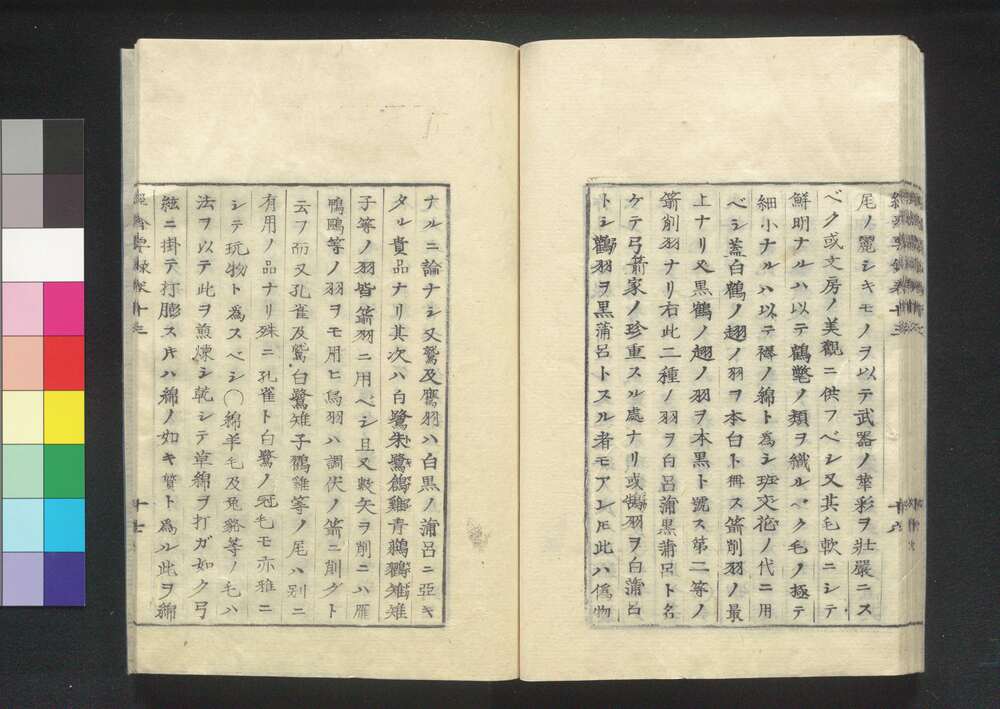 尾ノ麗シキモノヲ以テ武器ノ華彩ヲ壯嚴ニス
ベク或文房ノ美觀ニ供フベシ又其毛軟ニシテ
鮮明ナルハ以テ鸖氅ノ類ヲ織ルベク毛ノ極テ
細小ナルハ以テ褥ノ綿ト為シ斑文花ノ代ニ用
ベシ蓋白鶴ノ翅ノ羽ヲ本白ト称ス箭削羽ノ最
上ナリ又黒鶴ノ翅ノ羽ヲ本黒ト號ス第二等ノ
箭削羽ナリ右此二種ノ羽ヲ白呂蒲黒蒲呂ト名
ケテ弓箭家ノ珍重スル處ナリ或鵠羽ヲノ白蒲呂
トシ鸛羽ヲ黒蒲呂トスル者モアレ𪜈此ハ偽物
ナルニ論ナシ又鷲及鷹羽ハ白黒ノ蒲呂ニ亞キ
タル貴品ナリ其次ハ白鷺朱鷺雞青鷀雉
子等ノ羽皆箭羽ニ用ベシ且又數矢ヲ削ニハ雁
鴨鷗等ノ羽ヲモ用ヒ烏羽ハ調伏ノ箭ニ削グト
云フ而又孔雀及鷲白鷺雉子雞等ノ尾ハ別ニ
有用ノ品ナリ殊ニ孔雀ト白鷺ノ冠毛モ亦雅ニ
シテ玩物ト為スベシ〇綿羊毛及兔貉等ノ毛ハ
法ヲ以テ此ヲ煎煉シ乾シテ草綿ヲ打ガ如ク弓
絃ニ掛テ打膨スキハ綿ノ如キ質ト為ル此ヲ綿
十七